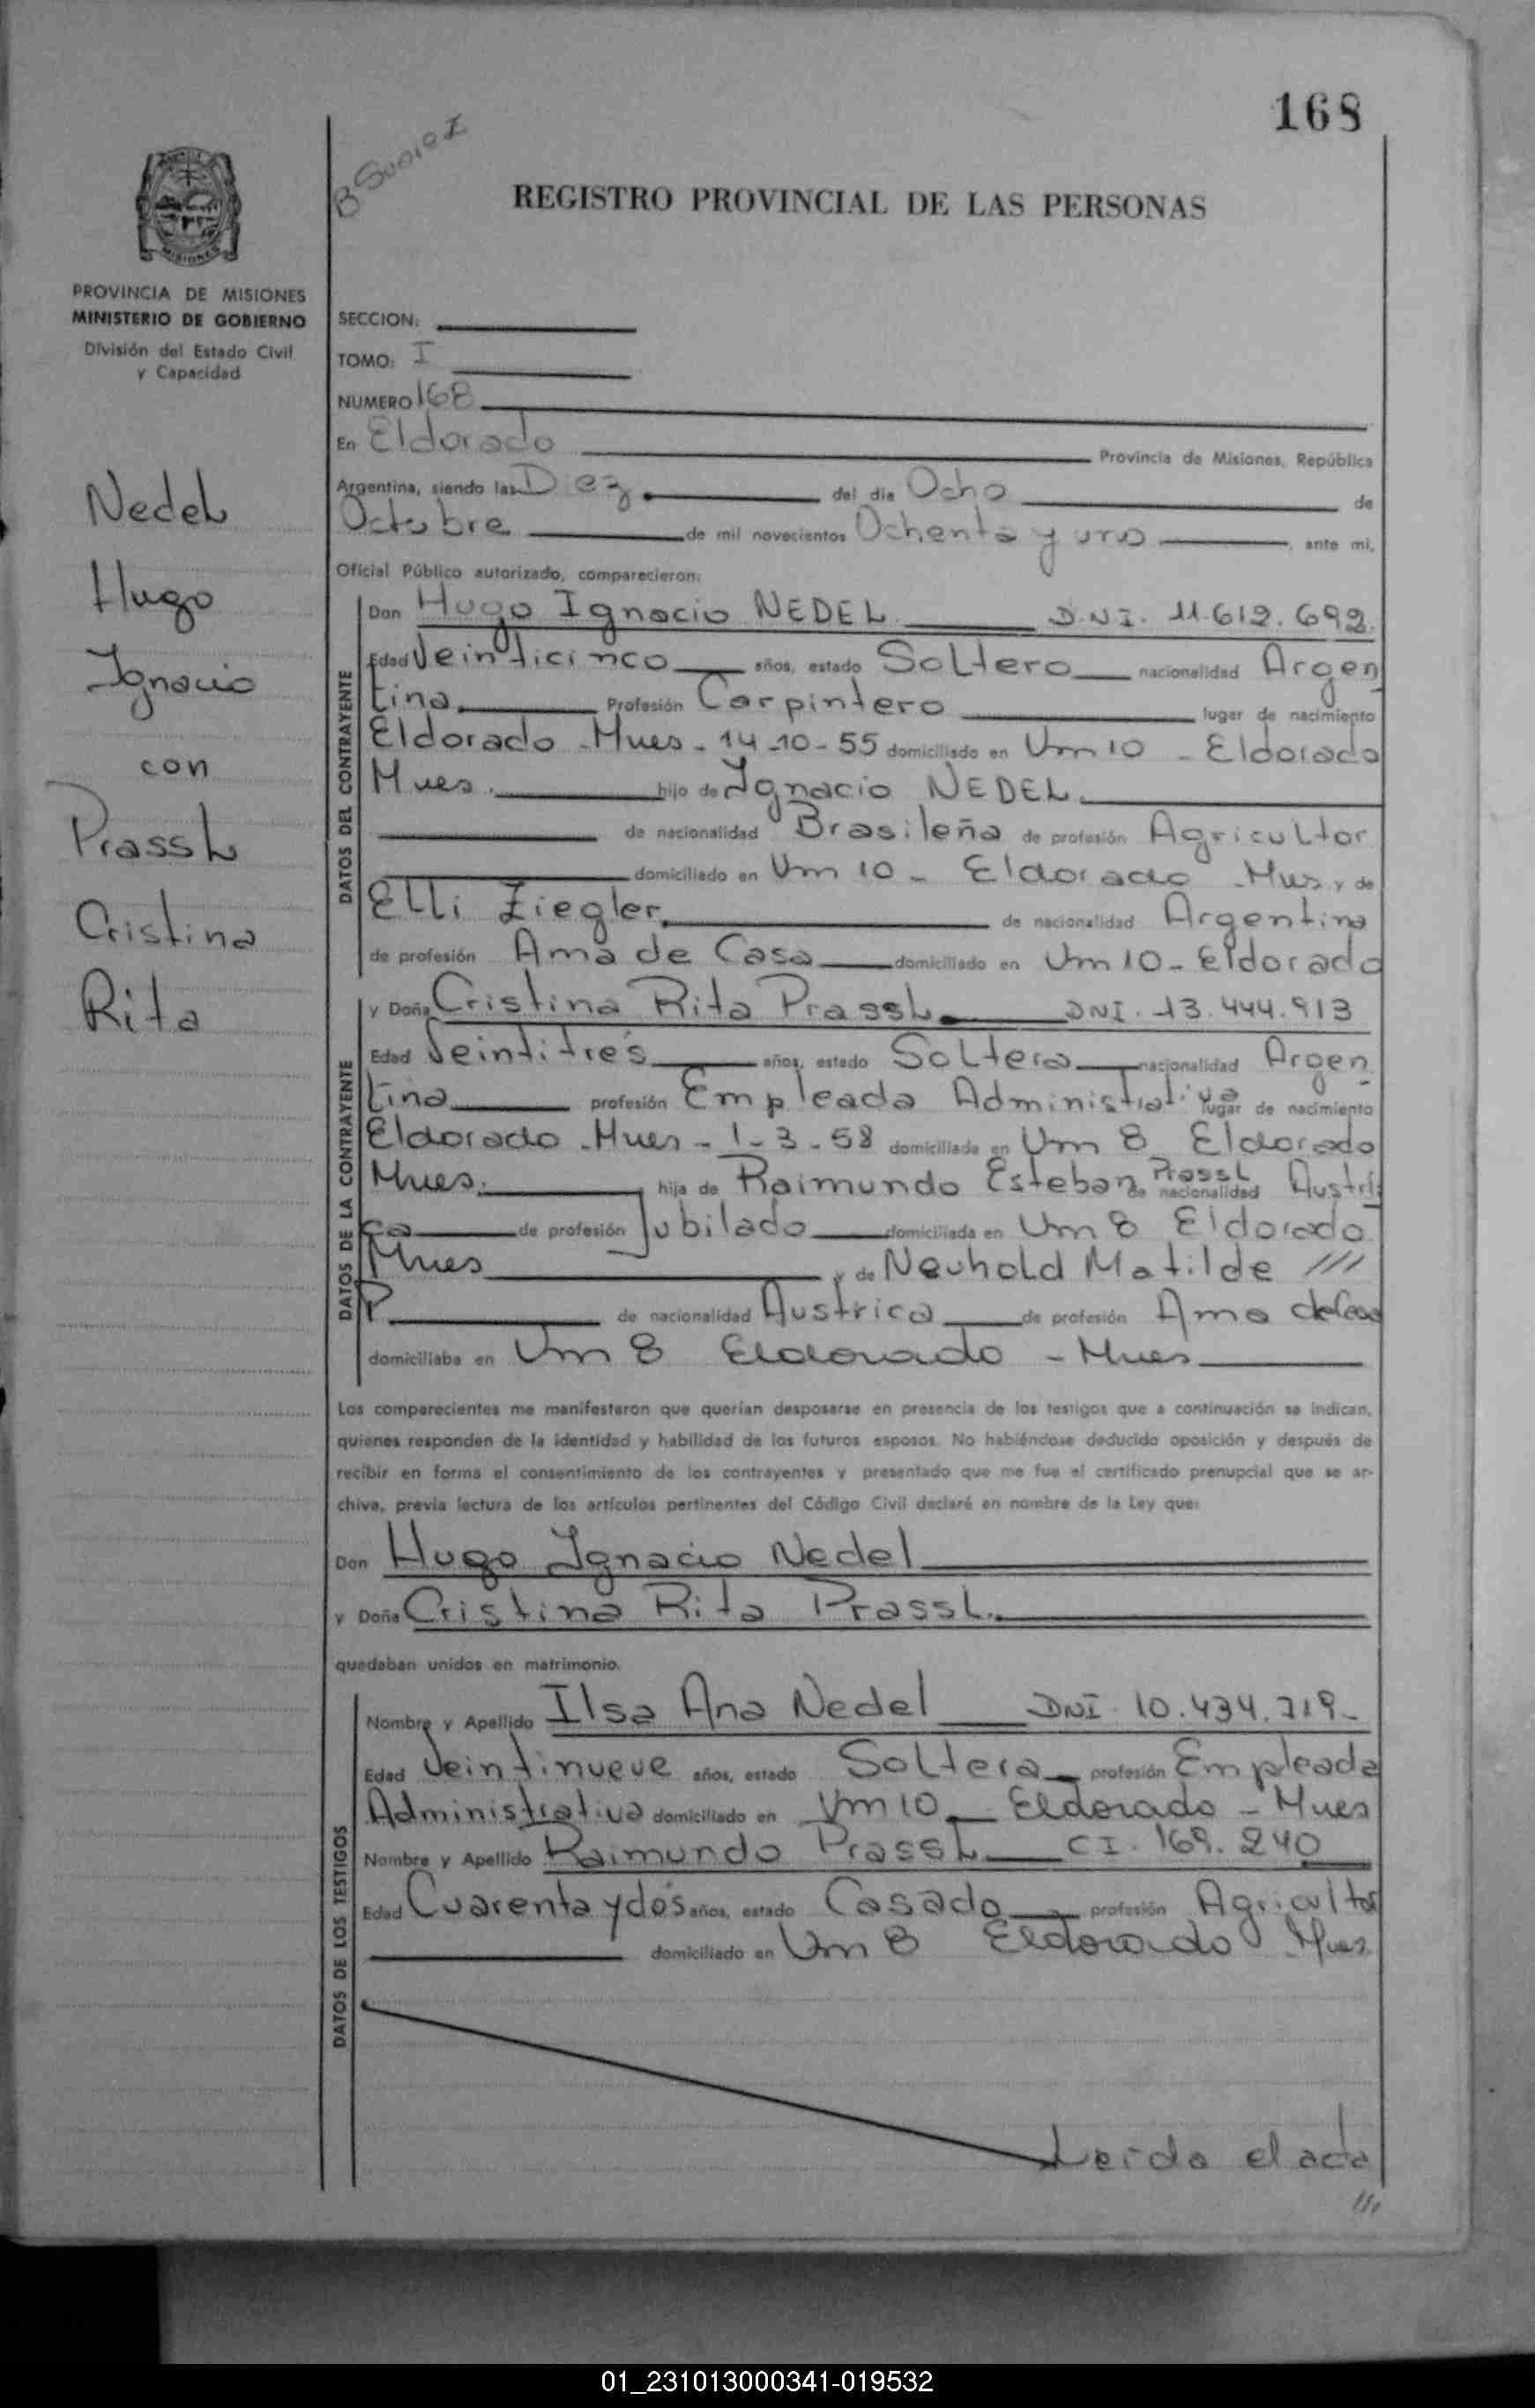 168
B Suarez
REGISTRO PROVINCIAL DE LAS PERSONAS
MISIONES
PROVINCIA DE MISIONES
MINISTERIO DE GOBIERNO
División del Estado Civil
y Capacidad
Nedel
Hugo
Ignacio
con
Prassl
Cristina
Rita
SECCION:
TOMO: I
NUMERO 168
En Eldorado Provincia de Misiones, República
Argentina, siendo las Diez del dia Ocho de
Octubre de mil novecientos Ochenta y uno, ante mi,
Oficial Público autorizado, comparecieron:
DATOS DEL CONTRAYENTE
Don Hugo Ignacio NEDEL D.N.I. 11.612.692
Edad Veinticinco años, estado Soltero nacionalidad Argen
tina Profesión Carpintero lugar de nacimiento
Eldorado - Mnes - 14-10-55 domiciliado en Km 10 - Eldorado
Mnes. hijo de Ignacio NEDEL
de nacionalidad Brasileña de profesión Agricultor
domiciliado en Km 10 - Eldorado - Mnes y de
Elli Ziegler de nacionalidad Argentina
de profesión Ama de Casa domiciliado en Km 10 - Eldorado
DATOS DE LA CONTRAYENTE
y Doña Cristina Rita Prassl DNI. 13.444.913
Edad Veintitrés años, estado Soltera nacionalidad Argen
tina profesión Empleada Administrativa lugar de nacimiento
Eldorado - Mnes - 1-3-58 domiciliada en Km 8 Eldorado
Mnes. hija de Raimundo Esteban Prassl de nacionalidad Austri
ca de profesión Jubilado domiciliada en Km 8 Eldorado
Mnes y de Neuhold Matilde ///
P. de nacionalidad Austrica de profesión Ama de Casa
domiciliaba en Km 8 Eldorado - Mnes
Los comparecientes me manifestaron que querían desposarse en presencia de los testigos que a continuación se indican,
quienes responden de la identidad y habilidad de los futuros esposos. No habiéndose deducido oposición y después de
recibir en forma el consentimiento de los contrayentes y presentado que me fue el certificado prenupcial que se ar-
chiva, previa lectura de los artículos pertinentes del Código Civil declaré en nombre de la Ley que:
Don Hugo Ignacio Nedel
y Doña Cristina Rita Prassl.
quedaban unidos en matrimonio.
DATOS DE LOS TESTIGOS
Nombre y Apellido Ilsa Ana Nedel DNI. 10.434.719-
Edad Veintinueve años, estado Soltera profesión Empleada
Administrativa domiciliado en Km 10 - Eldorado - Mnes
Nombre y Apellido Raimundo Prassl CI. 169.240
Edad Cuarenta y dos años, estado Casado profesión Agricultor
domiciliado en Km 8 Eldorado Mnes.
Leida el acta
///
01_231013000341-019532